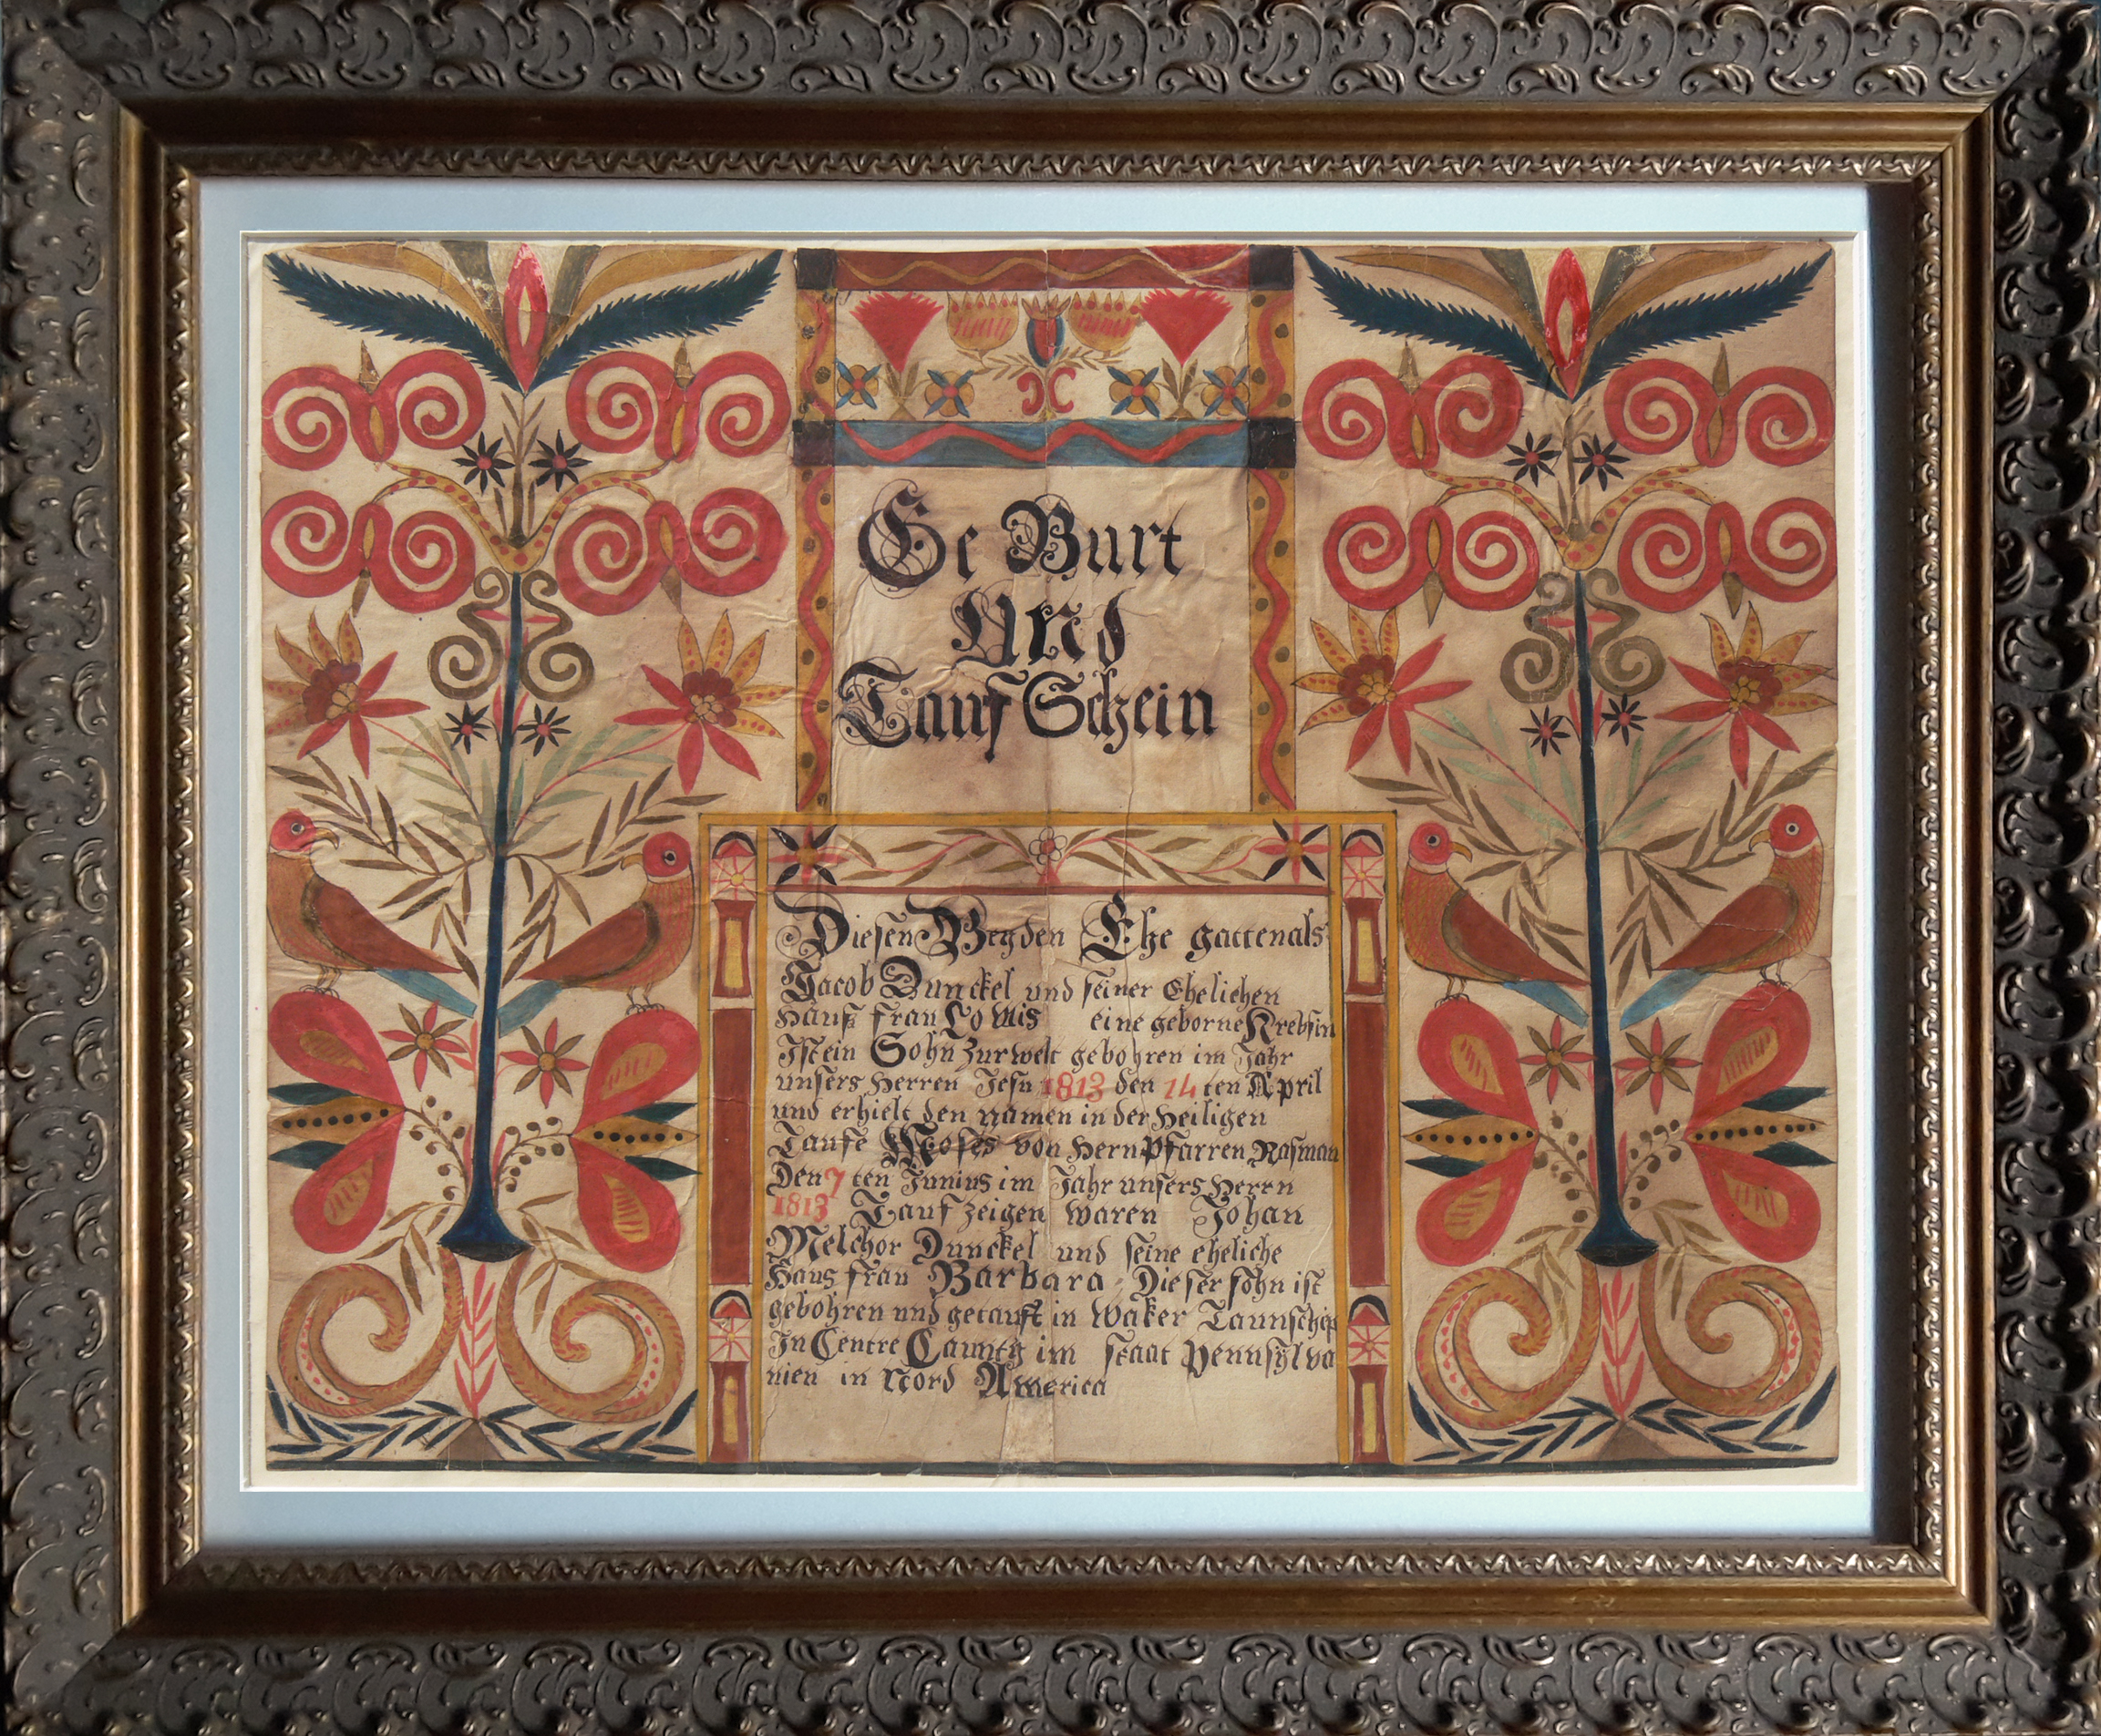 Ge Burt
Und
Tauf Schein
Diesen Beyden Ehe gattenals
Jacob Dunckel und seiner Ehelichen
Hauß frau Lowis eine geborne Krebsin
Ist ein Sohn zur welt gebohren im Jahr
unsers Herren Jesu 1813 den 14 ten April
und erhielt den namen in der Heiligen
Taufe Moses von Hern Pfarren Rasman
Den 7 ten Junius im Jahr unsers Herrn
1813 Tauf zeigen waren Johan
Melchor Dunckel und seine eheliche
Haus frau Barbara Dieser sohn ist
gebohren und getauft in Waker Taunschip
In Centre Caunty im staat Pennsylva
nien in Nord America